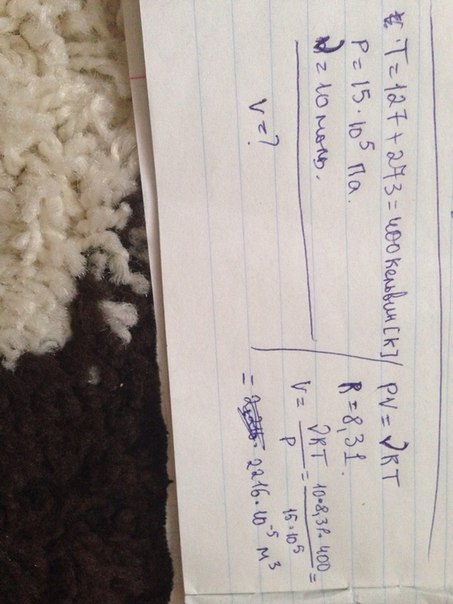 T = 127 + 273 = 400 кельвин [К]
P = 15 · 10⁵ Па.
ν = 10 моль.
V = ?
PV = νRT
R = 8,31.
V = νRT / P = 10 · 8,31 · 400 / 15 · 10⁵ =
= 2216 · 10⁻⁵ м³